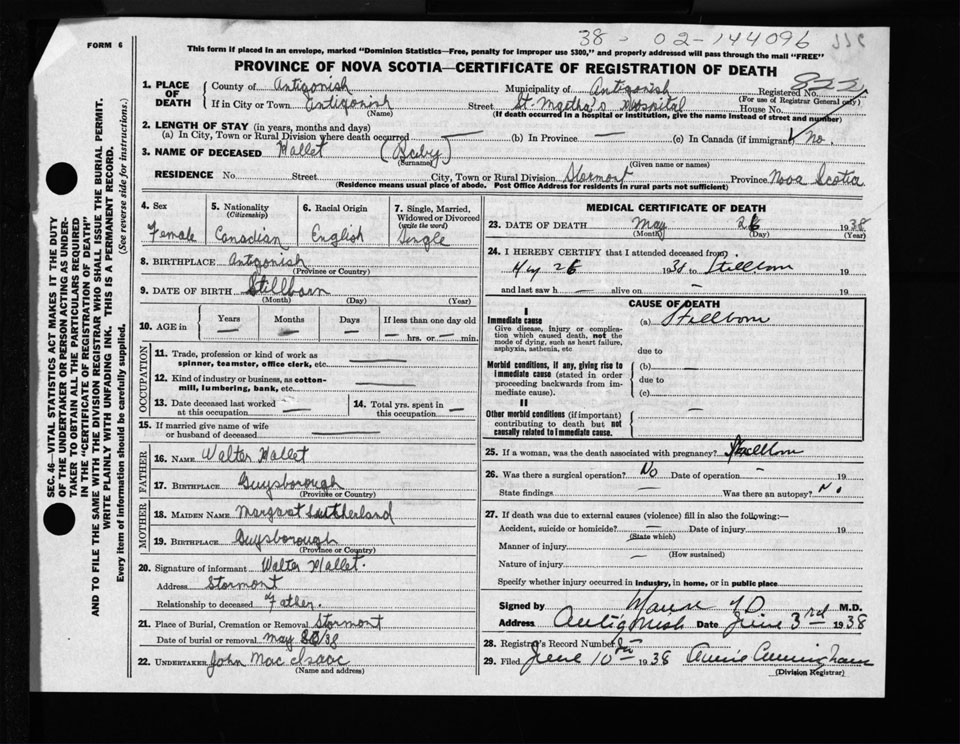 38 - 02-144096
FORM 6
This form if placed in an envelope, marked "Dominion Statistics—Free, penalty for improper use $300," and properly addressed will pass through the mail "FREE"
PROVINCE OF NOVA SCOTIA—CERTIFICATE OF REGISTRATION OF DEATH
822
1. PLACE OF DEATH
County of Antigonish Municipality of Antigonish Registered No.
(For use of Registrar General only)
If in City or Town Antigonish Street St. Martha's Hospital House No.
(Name) (If death occurred in a hospital or institution, give the name instead of street and number)
2. LENGTH OF STAY (in years, months and days)
(a) In City, Town or Rural Division where death occurred — (b) In Province — (c) In Canada (if immigrant) No.
3. NAME OF DECEASED Hallet (Baby)
(Surname) (Given name or names)
RESIDENCE No. Street City, Town or Rural Division Stormont Province Nova Scotia
(Residence means usual place of abode. Post Office Address for residents in rural parts not sufficient)
4. Sex
Female
5. Nationality
(Citizenship)
Canadian
6. Racial Origin
English
7. Single, Married, Widowed or Divorced
(write the word)
Single
8. BIRTHPLACE Antigonish
(Province or Country)
9. DATE OF BIRTH Stillborn
(Month) (Day) (Year)
10. AGE in
Years Months Days If less than one day old
— — — — hrs. or — min.
OCCUPATION
11. Trade, profession or kind of work as spinner, teamster, office clerk, etc. —
12. Kind of industry or business, as cotton-mill, lumbering, bank, etc. —
13. Date deceased last worked at this occupation —
14. Total yrs. spent in this occupation —
15. If married give name of wife or husband of deceased —
FATHER
16. NAME Walter Hallet
17. BIRTHPLACE Guysborough
(Province or Country)
MOTHER
18. MAIDEN NAME Margaret Sutherland
19. BIRTHPLACE Guysborough
(Province or Country)
20. Signature of informant Walter Hallet.
Address Stormont
Relationship to deceased Father.
21. Place of Burial, Cremation or Removal Stormont
Date of burial or removal May /38
22. UNDERTAKER John Mac Isaac
(Name and address)
MEDICAL CERTIFICATE OF DEATH
23. DATE OF DEATH May 26 1938
(Month) (Day) (Year)
24. I HEREBY CERTIFY that I attended deceased from
May 26 1938 to Stillborn 19
and last saw h — alive on — 19
CAUSE OF DEATH
I
Immediate cause
Give disease, injury or complication which caused death, not the mode of dying, such as heart failure, asphyxia, asthenia, etc
(a) Stillborn
due to
Morbid conditions, if any, giving rise to immediate cause (stated in order proceeding backwards from immediate cause).
(b) —
due to
(c)
II
Other morbid conditions (if important) contributing to death but not causally related to immediate cause. —
25. If a woman, was the death associated with pregnancy? Stillborn
26. Was there a surgical operation? No Date of operation - 19
State findings — Was there an autopsy? No
27. If death was due to external causes (violence) fill in also the following:—
Accident, suicide or homicide? — Date of injury 19
(State which)
Manner of injury —
(How sustained)
Nature of injury
Specify whether injury occurred in industry, in home, or in public place
Signed by M.D.
Address Antigonish Date June 3rd 1938
28. Registrar's Record Number
29. Filed June 10th 1938 Annie Cunningham
(Division Registrar)
SEC. 46—VITAL STATISTICS ACT MAKES IT THE DUTY
OF THE UNDERTAKER OR PERSON ACTING AS UNDER-
TAKER TO OBTAIN ALL THE PARTICULARS REQUIRED
IN THE "CERTIFICATE OF REGISTRATION OF DEATH"
AND TO FILE THE SAME WITH THE DIVISION REGISTRAR WHO SHALL ISSUE THE BURIAL PERMIT.
WRITE PLAINLY WITH UNFADING INK. THIS IS A PERMANENT RECORD.
Every item of information should be carefully supplied. (See reverse side for instructions.)